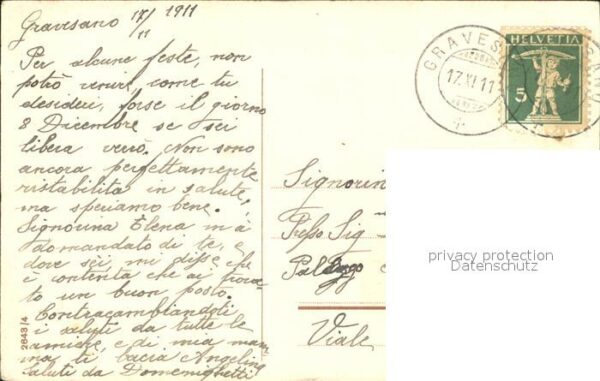 Gravesano 17/11 1911
Per alcune feste, non
potrò venire, come tu
desideri, forse il giorno
8 Dicembre se sei
libera verrò. Non sono
ancora perfettamente
ristabilita in salute,
ma speriamo bene.
Signorina Elena m'à
domandato di te, e
dove sei mi disse che
è contenta che ai trova-
to un buon posto.
Contracambiandoti
i saluti da tutte le
amiche, e di mia mam-
ma ti bacia Angelina
saluti da Domenighetti
2643/4
GRAVESANO
17.XI.11
HELVETIA
5
Signorin
Presso Sig
Viale
privacy protection
Datenschutz